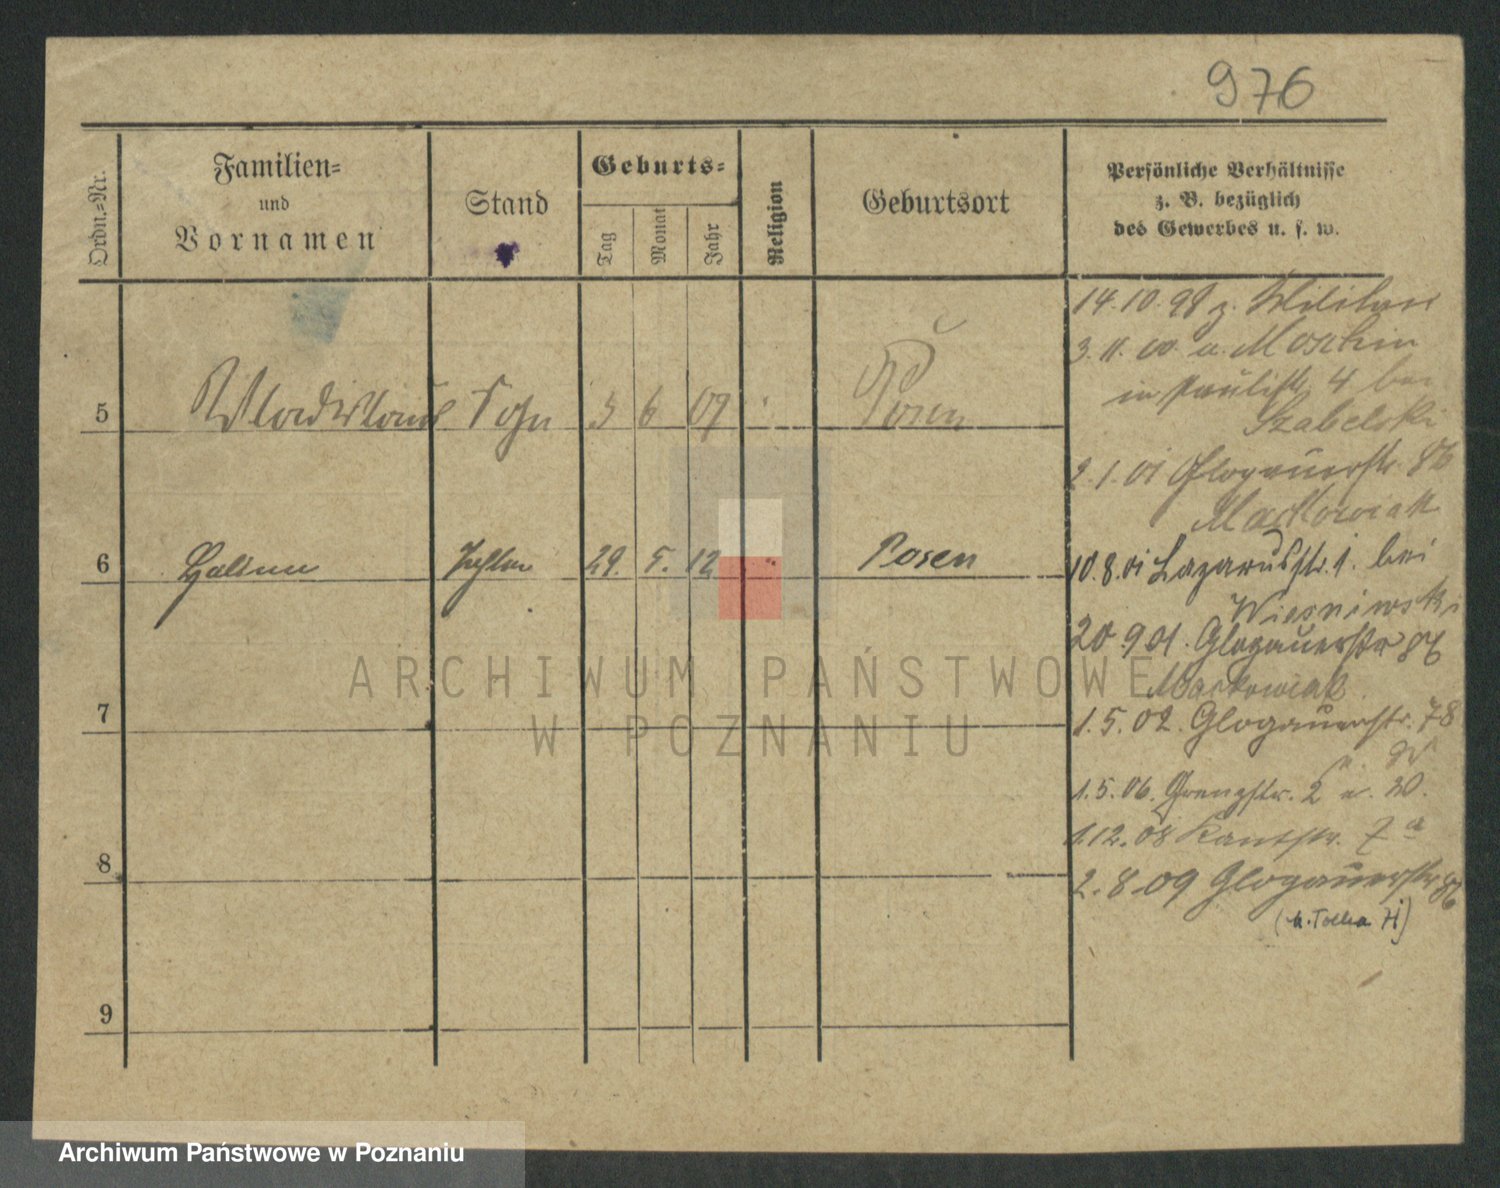 976
Ordn.-Nr.
Familien-
und
Vornamen
Stand
Geburts-
Tag
Monat
Jahr
Religion
Geburtsort
Persönliche Verhältnisse
z. B. bezüglich
des Gewerbes u. s. w.
14.10.98 z. Militär
3.11.00 a. Moschin
in Paulistr. 4 bei
Szabelski
5 Wladislaus Sohn 3 6 07 Posen
2.1.01 Glogauerstr. 86
Maćkowiak
6 Halina Tochter 29. 5. 12 " Posen
10.8.01 Lazarusstr. 1. bei
Wiesniewski
20.9.01. Glogauerstr 86
Maćkowiak
7
1.5.02. Glogauerstr. 78
1.5.06. Grenzstr. 2 u. 30.
1.12.08 Kantstr. 7a
8
2.8.09 Glogauerstr 86
9
ARCHIWUM PAŃSTWOWE
W POZNANIU
Archiwum Państwowe w Poznaniu